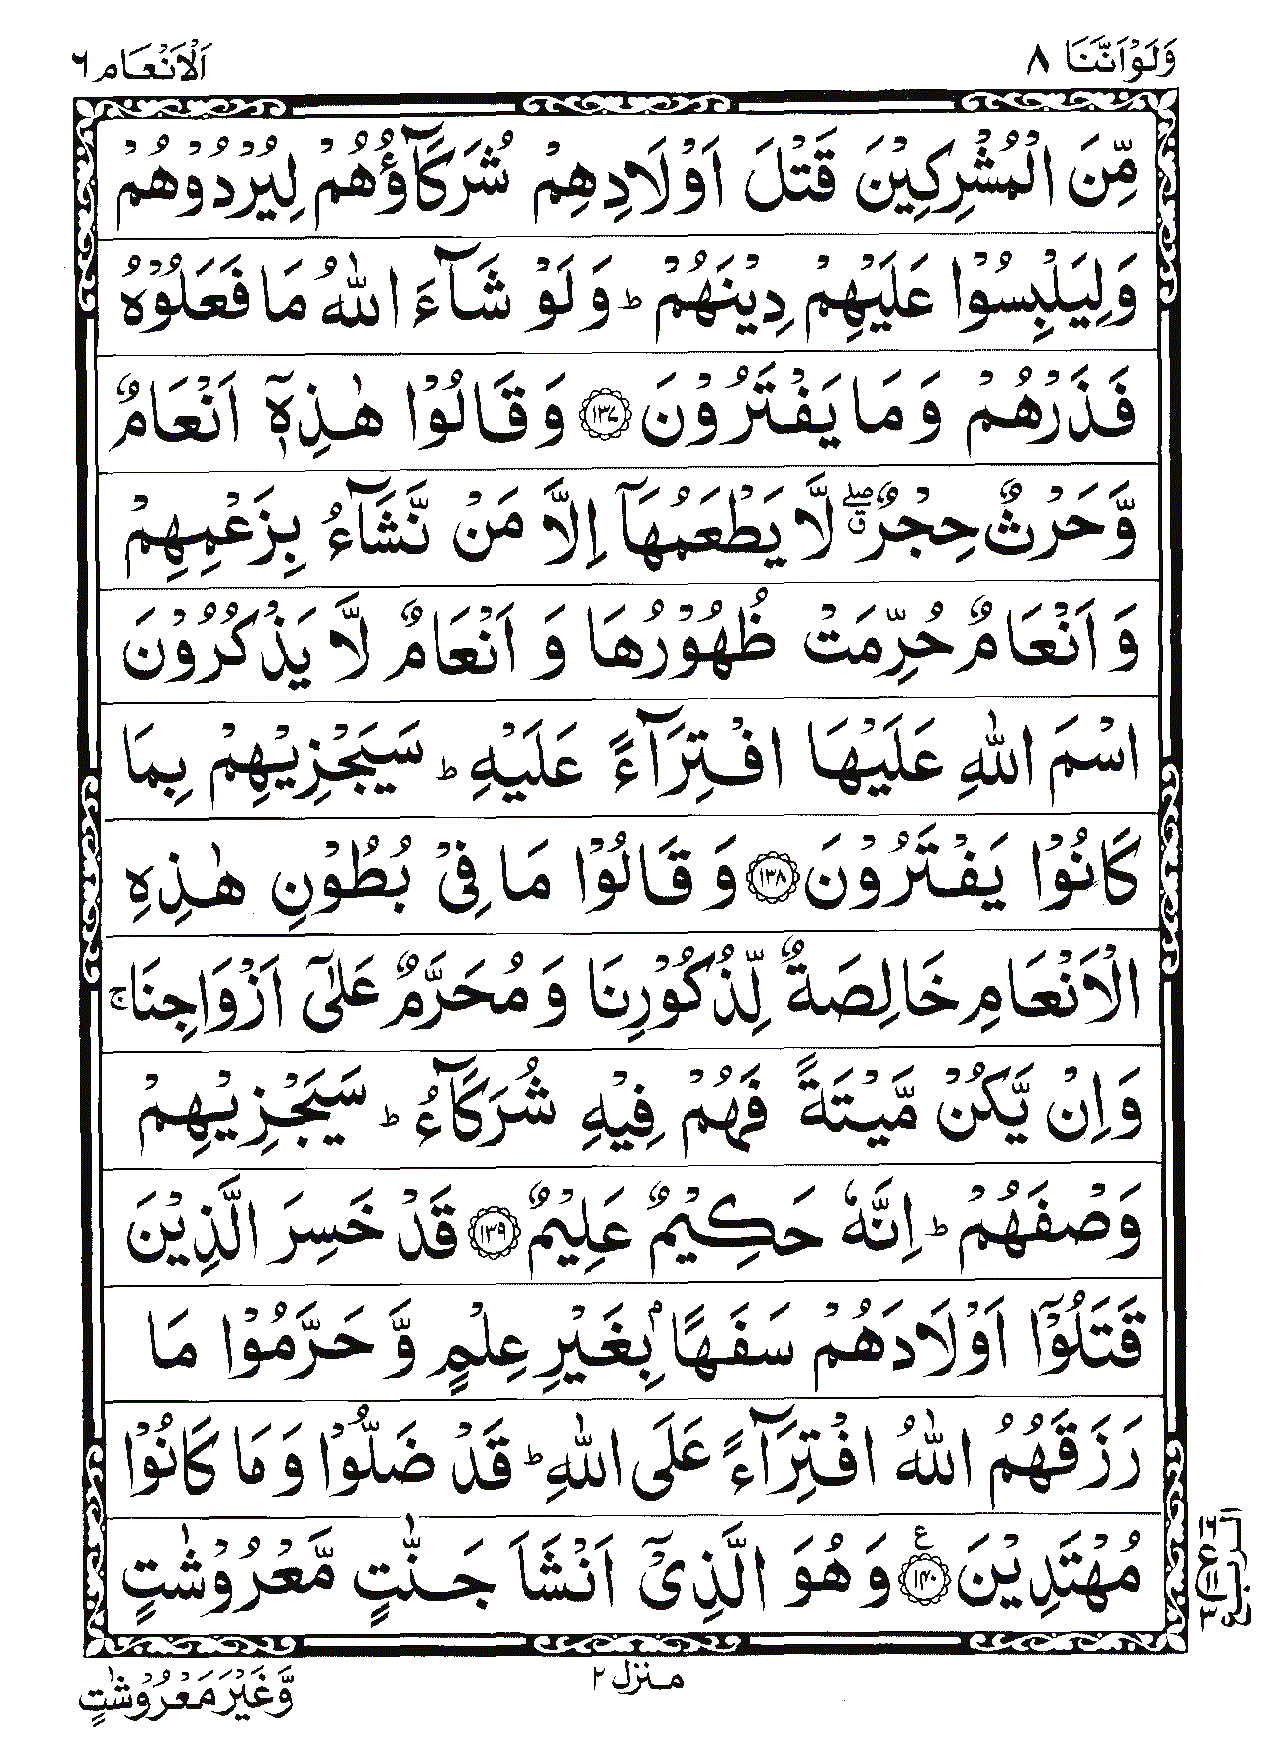 وَلَوْاَنَّنَا ٨
اَلْاَنْعَام ٦
مِّنَ الْمُشْرِكِيْنَ قَتْلَ اَوْلَادِهِمْ شُرَكَآؤُهُمْ لِيُرْدُوْهُمْ
وَلِيَلْبِسُوْا عَلَيْهِمْ دِيْنَهُمْ ؕ وَلَوْ شَآءَ اللّٰهُ مَا فَعَلُوْهُ
فَذَرْهُمْ وَمَا يَفْتَرُوْنَ ﴿۱۳۷﴾ وَقَالُوْا هٰذِهٖۤ اَنْعَامٌ
وَّحَرْثٌ حِجْرٌ ۖۗ لَّا يَطْعَمُهَاۤ اِلَّا مَنْ نَّشَآءُ بِزَعْمِهِمْ
وَاَنْعَامٌ حُرِّمَتْ ظُهُوْرُهَا وَاَنْعَامٌ لَّا يَذْكُرُوْنَ
اسْمَ اللّٰهِ عَلَيْهَا افْتِرَآءً عَلَيْهِ ؕ سَيَجْزِيْهِمْ بِمَا
كَانُوْا يَفْتَرُوْنَ ﴿۱۳۸﴾ وَقَالُوْا مَا فِىْ بُطُوْنِ هٰذِهِ
الْاَنْعَامِ خَالِصَةٌ لِّذُكُوْرِنَا وَمُحَرَّمٌ عَلٰٓى اَزْوَاجِنَا ۚ
وَاِنْ يَّكُنْ مَّيْتَةً فَهُمْ فِيْهِ شُرَكَآءُ ؕ سَيَجْزِيْهِمْ
وَصْفَهُمْ ؕ اِنَّهٗ حَكِيْمٌ عَلِيْمٌ ﴿۱۳۹﴾ قَدْ خَسِرَ الَّذِيْنَ
قَتَلُوْۤا اَوْلَادَهُمْ سَفَهًاۢ بِغَيْرِ عِلْمٍ وَّحَرَّمُوْا مَا
رَزَقَهُمُ اللّٰهُ افْتِرَآءً عَلَى اللّٰهِ ؕ قَدْ ضَلُّوْا وَمَا كَانُوْا
مُهْتَدِيْنَ ﴿۱۴۰﴾ ع وَهُوَ الَّذِىْۤ اَنْشَاَ جَنّٰتٍ مَّعْرُوْشٰتٍ
منزل ٢
وَّغَيْرَ مَعْرُوْشٰتٍ